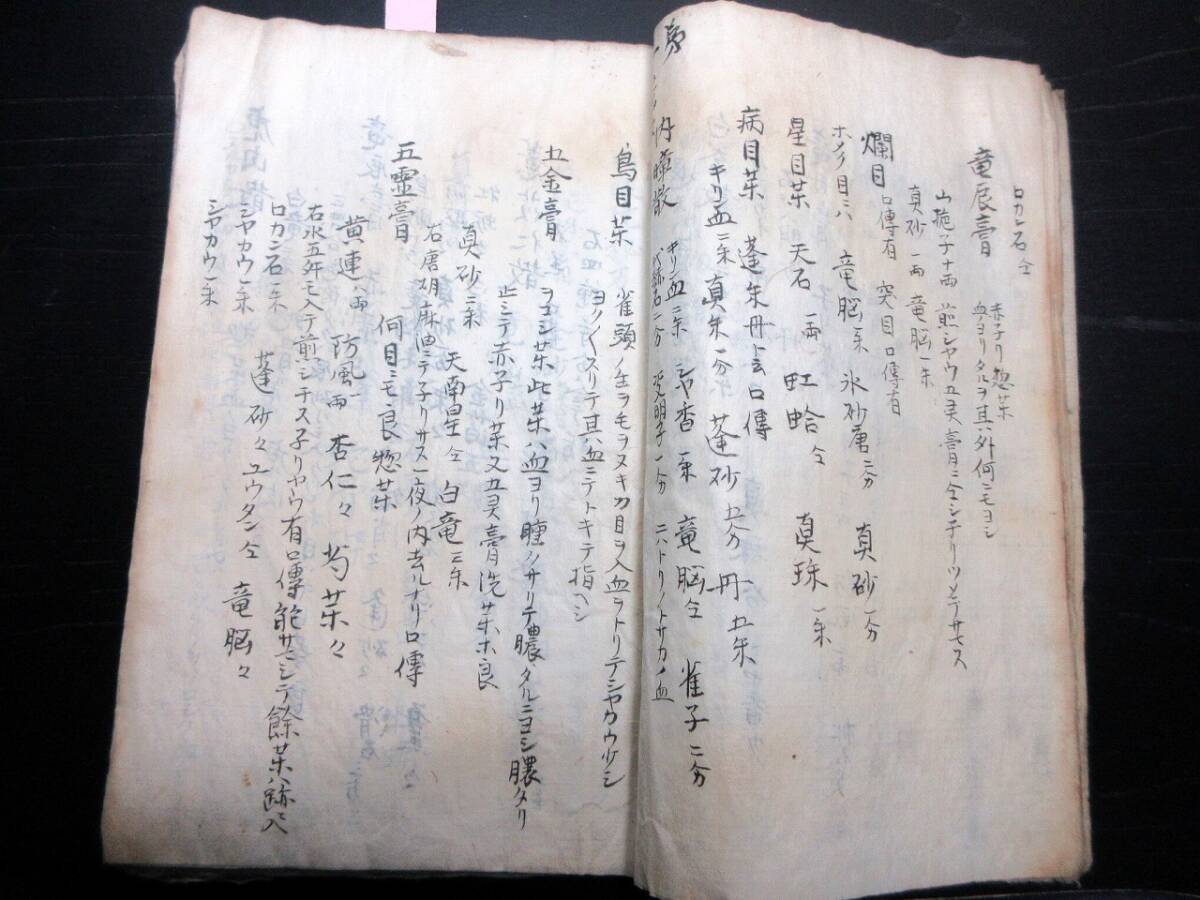 ロカン石仝
竜辰膏 赤子リ惣茱
血ヨリタルヲ其外何ニモヨシ
山梔子十両 煎シヤウ五灵膏ニ仝シ子リツメテサセス
真砂一両 竜脳一朱
爛目 口傳有 突目口傳有
ホノク目ニハ 竜脳一朱 氷砂唐二分 真砂一分
星目茱 天石一両 虹蛤仝 真珠一朱
病目茱 蓬朱丹ト云口傳
キリ血二朱 真朱一分 蓬砂五分 丹五朱
内障散 キリン血二朱 シヤ香一朱 竜脳仝 雀子二分
石二分 一分 ニハトリノトサカノ血
鳥目茱 雀頭ノ生ヲモヲヌキカ目ヲ入血ヲトリテシヤカウ少シ
ヨノクスリテ其血ニテトキテ指ヘシ
五金膏 ヲコシ茱此茱ハ血ヨリ腫ノサリテ膿タルニヨシ膿タリ
止ミテ赤子リ茱又五灵膏洗茱ホ良
真砂二朱 天南星仝 白竜三朱
右唐胡麻油ニテ子リサス一夜ノ内去ルナリ口傳
五靈膏 何目ニモ良惣茱
黄連一両 防風一両 杏仁々 芍茱々
右水五年モ入テ煎シテス子リヤウ有口傳能サマシテ餘茱ハ跡ヘ
ロカン石一朱 蓬砂々 ユウタン仝 竜脳々
シヤカウ一朱
シヤカウ一朱